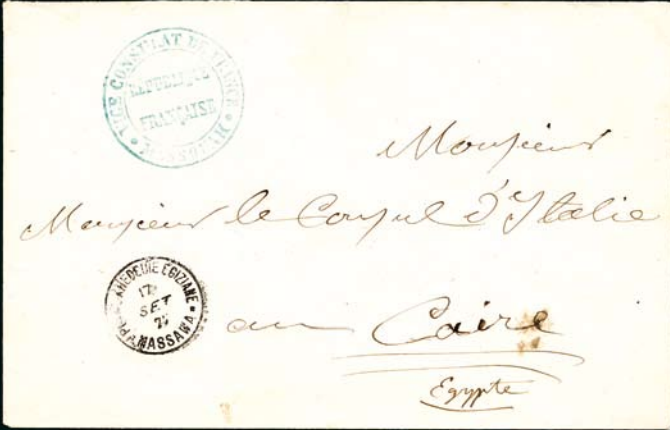 VICE CONSULAT DE FRANCE
RÉPUBLIQUE
FRANÇAISE
Monsieur
Monsieur le Consul d'Italie
KHEDEUIE EGIZIANE
17
SET
MASSAWA
au Caire
Egypte